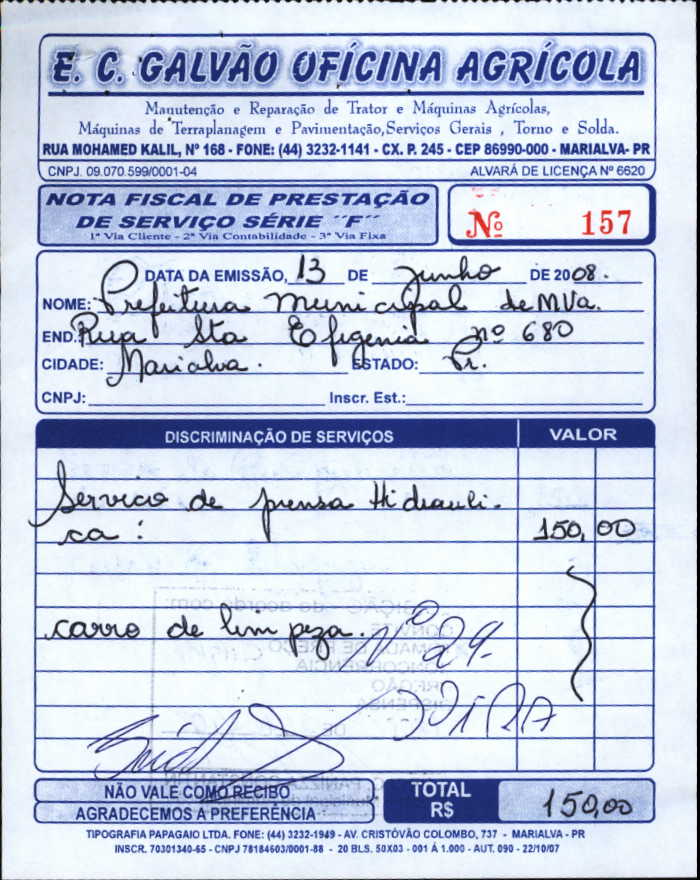 E. C. GALVÃO OFÍCINA AGRÍCOLA
Manutenção e Reparação de Trator e Máquinas Agrícolas,
Máquinas de Terraplanagem e Pavimentação,Serviços Gerais , Torno e Solda.
RUA MOHAMED KALIL, Nº 168 - FONE: (44) 3232-1141 - CX. P. 245 - CEP 86990-000 - MARIALVA- PR
CNPJ. 09.070.599/0001-04 ALVARÁ DE LICENÇA Nº 6620
NOTA FISCAL DE PRESTAÇÃO
DE SERVIÇO SÉRIE ´´F´´
1ª Via Cliente - 2ª Via Contabilidade - 3ª Via Fixa
Nº 157
DATA DA EMISSÃO, 13 DE Junho DE 2008.
NOME: Prefeitura Municipal de MVa.
END. Rua Sta Efigenia nº 680
CIDADE: Marialva. ESTADO: Pr.
CNPJ: Inscr. Est.:
DISCRIMINAÇÃO DE SERVIÇOS VALOR
Servico de prensa Hidrauli.
ca : 150,00
carro de limpeza. nº 29-
NÃO VALE COMO RECIBO
AGRADECEMOS A PREFERÊNCIA
TOTAL
R$ 150,00
TIPOGRAFIA PAPAGAIO LTDA. FONE: (44) 3232-1949 - AV. CRISTÓVÃO COLOMBO, 737 - MARIALVA - PR
INSCR. 70301340-65 - CNPJ 78184603/0001-88 - 20 BLS. 50X03 - 001 Á 1.000 - AUT. 090 - 22/10/07